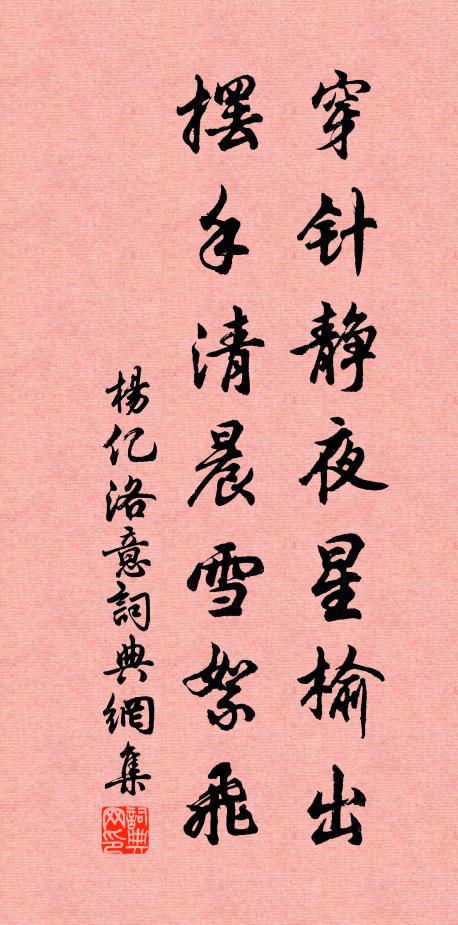 穿针静夜星榆出
摆手清晨雪絮飛
楊亿洛意詞典網集
詞典网印